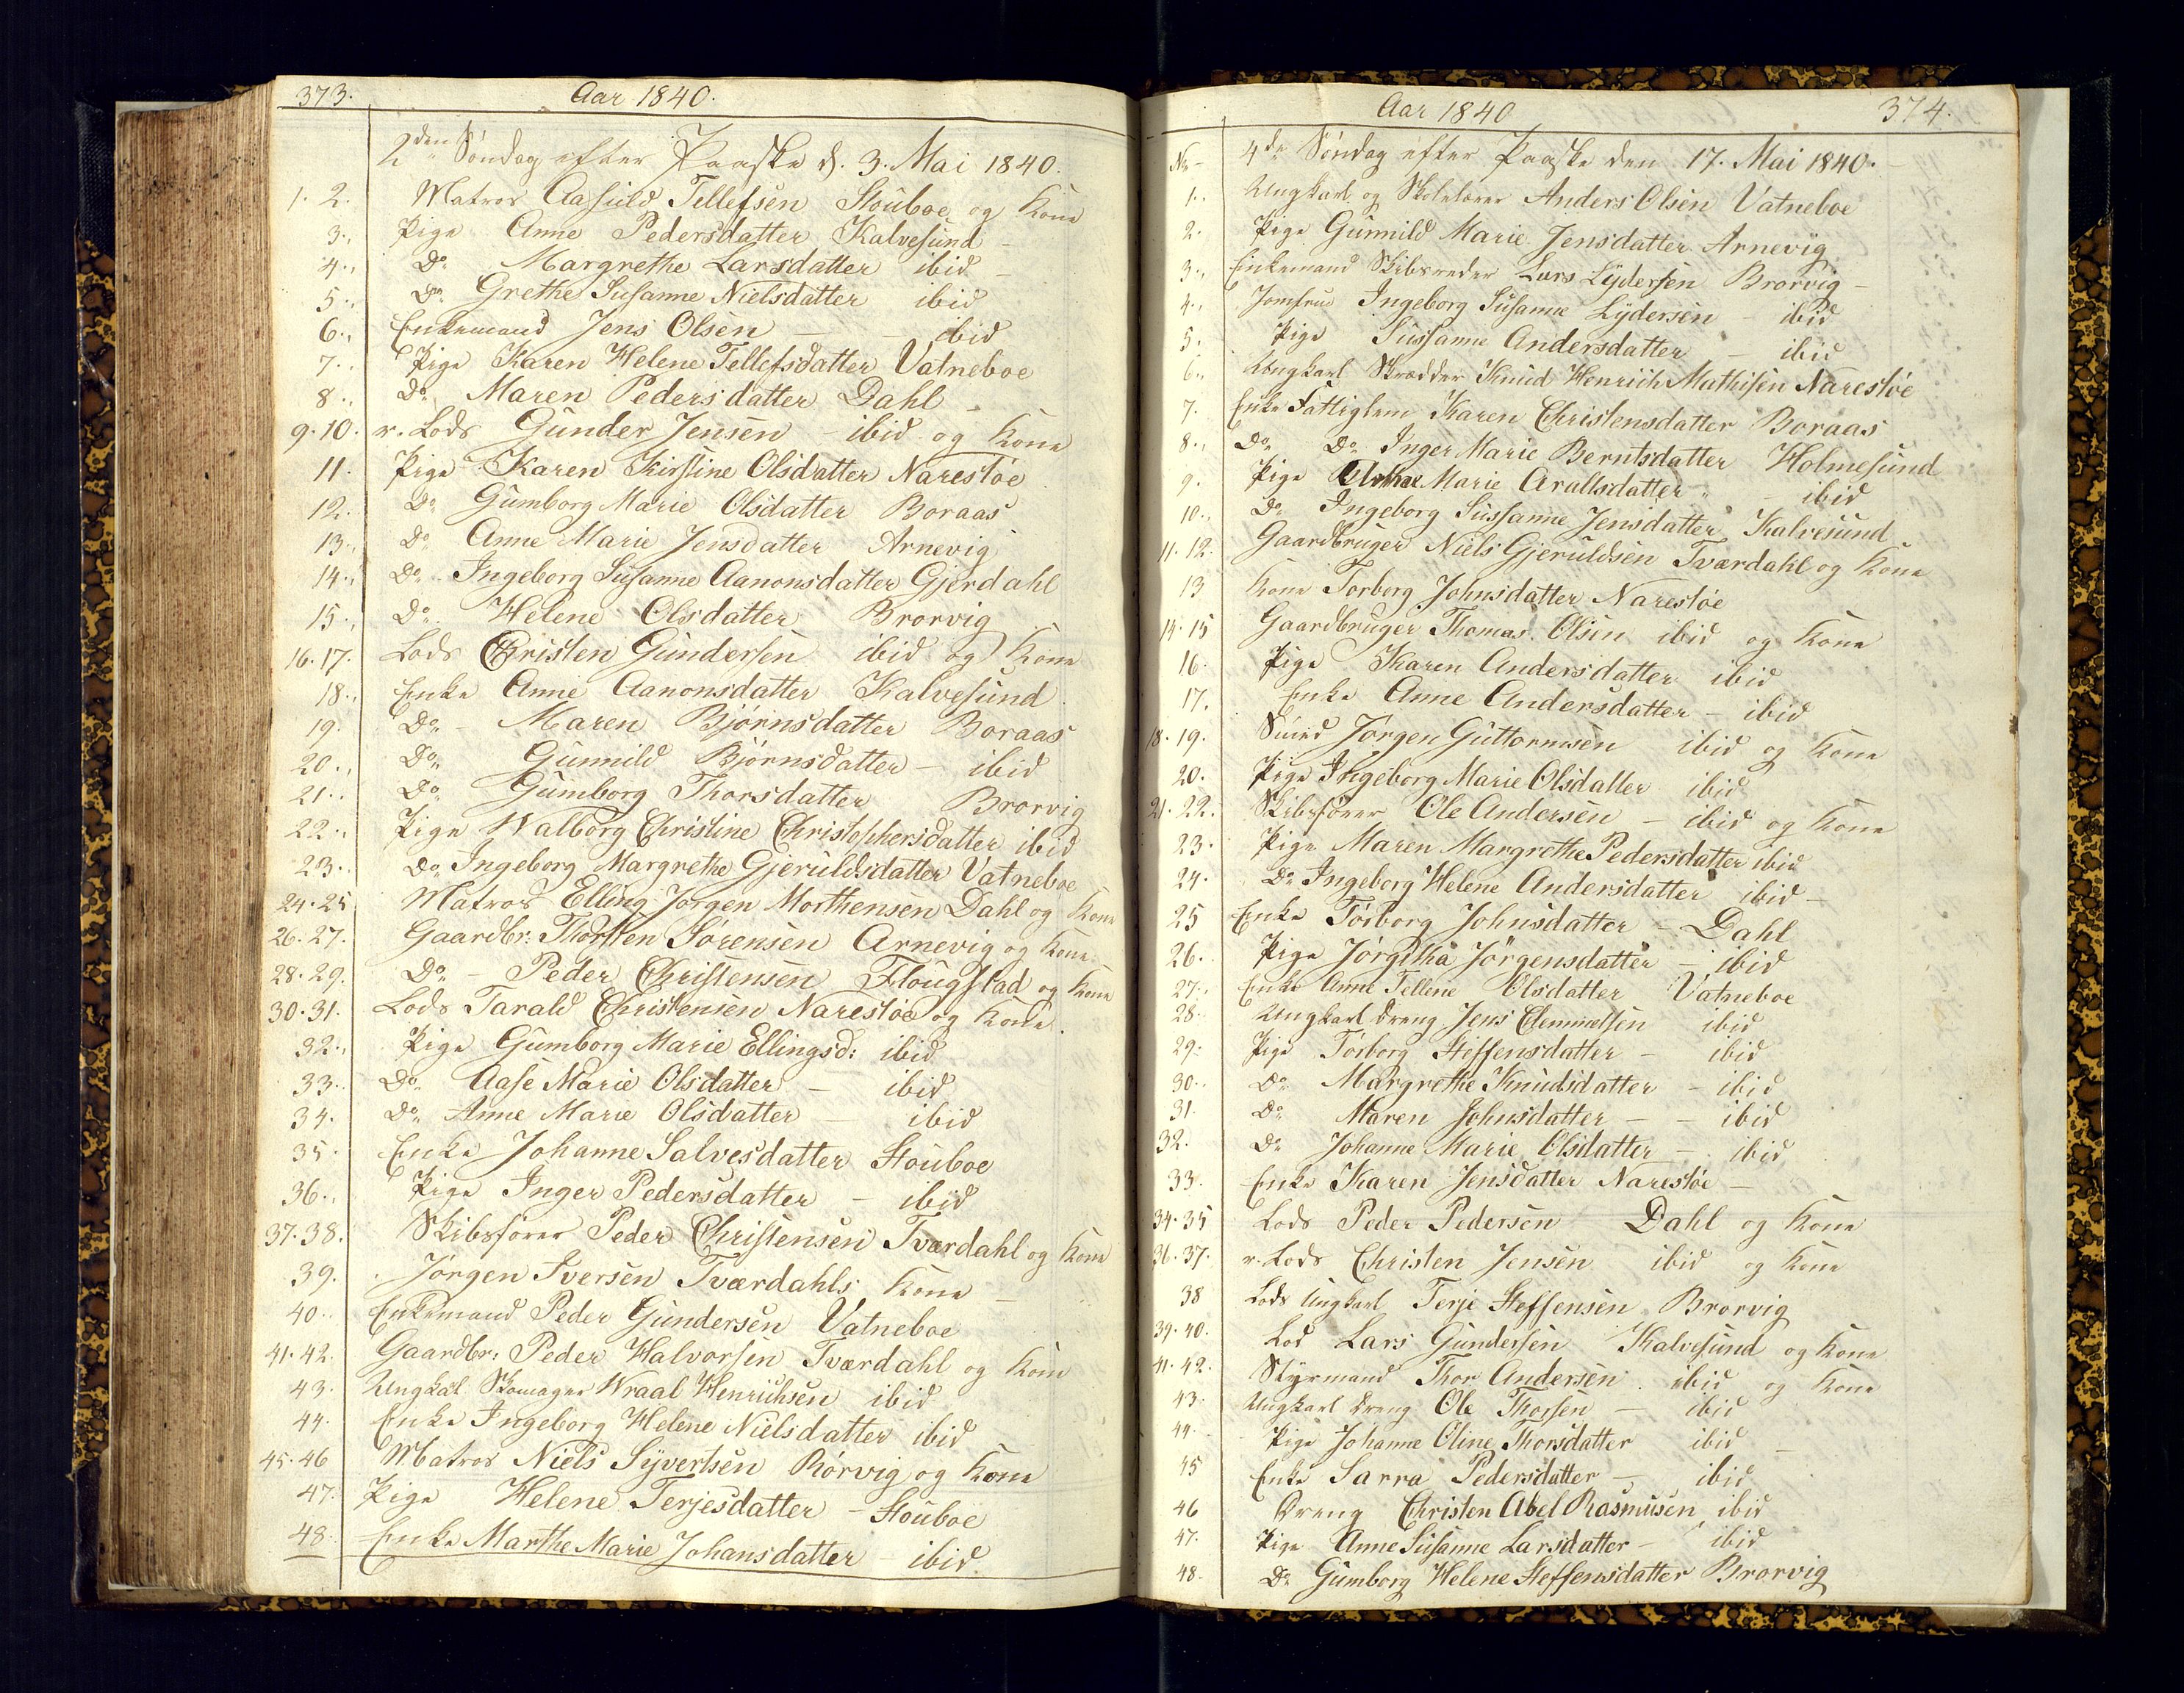 373.
Aar 1840.
2den Søndag efter Paaske d. 3. Mai 1840.
1. 2. Matros Aasuld Tellefsen Stouboe og Kone
3. Pige Anne Pedersdatter Kalvesund -
4. Do Margrethe Larsdatter ibid -
5. Do Grethe Susanne Nielsdatter ibid
6. Enkemand Jens Olsen - ibid
7. Pige Karen Helene Tellefsdatter Vatneboe
8. Do Maren Pedersdatter Dahl -
9. 10. r. Lods Gunder Jensen - ibid og Kone
11. Pige Karen Kirstine Olsdatter Narestøe
12. Do Gumborg Marie Olsdatter Boraas
13. Do Anne Marie Jensdatter Arnevig
14. Do Ingeborg Susanne Aanonsdatter Gjerdahl
15. Do Helene Olsdatter Brorvig
16. 17. Lods Christen Gundersen ibid og Kone
18. Enke Anne Aanonsdatter Kalvesund
19. Do - Maren Bjørnsdatter Boraas
20. Do Gunnild Bjørnsdatter - ibid
21. Do Gumborg Thorsdatter Brorvig
22. Pige Walborg Christine Christophersdatter ibid
23. Do Ingeborg Margrethe Gjeruldsdatter Vatneboe
24. 25 Matros Elling Jørgen Morthensen Dahl og Kone
26. 27. Gaardbr: Thorsten Sørensen Arnevig og Kone
28. 29. Do - Peder Christensen Flougstad og Kone
30. 31. Lods Tarald Christensen Narestøe og Kone.
32. Pige Gumborg Marie Ellingsd: ibid
33. Do Aase Marie Olsdatter - ibid
34. Do Anne Marie Olsdatter - ibid
35. Enke Johanne Salvesdatter Stouboe
36. Pige Inger Pedersdatter - ibid
37. 38. Skibsfører Peder Christensen Tværdahl og Kone
39. Jørgen Iversen Tværdahls Kone -
40. Enkemand Peder Gundersen Vatneboe
41. 42. Gaardbr: Peder Halvorsen Tværdahl og Kone
43. Ungkal Skomager Wraal Henrichsen ibid
44. Enke Ingeborg Helene Nielsdatter ibid
45. 46 Matros Niels Syvertsen Rørvig og Kone
47. Pige Helene Terjesdatter - Stouboe
48. Enke Marthe Marie Johansdatter - ibid.
Aar 1840
374.
No - 4de Søndag efter Paaske den 17. Mai 1840.
1. Ungkarl og Skolelærer Anders Olsen Vatneboe
2. Pige Gunnild Marie Jensdatter Arnevig
3. Enkemand Skibsreder Lars Lydersen Brorvig -
4. Jomfrue Ingeborg Susanne Lydersen - ibid
5. Pige Sussanne Andersdatter - ibid
6. Ungkarl Skrædder Knud Henrich Mathisen Narestøe
7. Enke Fattiglem Karen Christensdatter Boraas
8. Do Do Inger Marie Berntsdatter Holmesund
9. Pige Marie Aralsdatter - ibid
10. Do Ingeborg Sussanne Jensdatter Kalvesund
11. 12. Gaardbruger Niels Gjeruldsen Tværdahl og Kone
13 Kone Torborg Johnsdatter Narestøe
14. 15 Gaardbruger Thomas Olsen ibid og Kone
16. Pige Karen Andersdatter ibid
17. Enke Anne Andersdatter - ibid
18. 19. Smed Jørgen Guttormsen ibid og Kone
20. Pige Ingeborg Marie Olsdatter ibid
21. 22. Skibsfører Ole Andersen - ibid og Kone
23. Pige Maren Margrethe Pedersdatter ibid
24. Do Ingeborg Helene Andersdatter ibid -
25 Enke Torborg Johnsdatter - Dahl
26. Pige Jørgika Jørgensdatter - ibid
27. Enke Anne Tellene Olsdatter Vatneboe
28. Ungkarl Dreng Jens Clemmetsen ibid
29. Pige Torborg Steffensdatter - ibid
30. Do Margrethe Knudsdatter - ibid
31. Do Maren Johnsdatter - - ibid
32. Do Johanne Marie Olsdatter - ibid
33. Enke Karen Jensdatter Narestøe -
34. 35 Lods Peder Pedersen Dahl og Kone
36. 37. r. Lods Christen Jensen ibid og Kone
38 Lods Ungkarl Terje Steffensen Brorvig
39. 40. Lods Lars Gundersen Kalvesund og Kone
41. 42. Styrmand Thor Andersen ibid og Kone
43. Ungkarl Dreng Ole Thorsen - ibid
44. Pige Johanne Oline Thorsdatter ibid -
45 Enke Sarra Pedersdatter - ibid
46 Dreng Christen Abel Rasmusen ibid
47. Pige Anne Susanne Larsdatter - ibid
48. Do Gumborg Helene Steffensdatter Brorvig